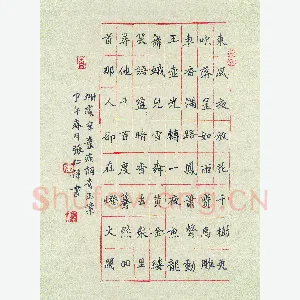 東風夜放花千樹更
吹落星如雨寶馬雕
車香滿路鳳簫聲動
玉壺光轉一夜魚龍
舞蛾兒雪柳黃金縷
笑語盈暗香去衆里
尋他千百度驀然回
首那人卻在燈火闌
珊處辛棄疾詞青玉案
甲午春月張仁書